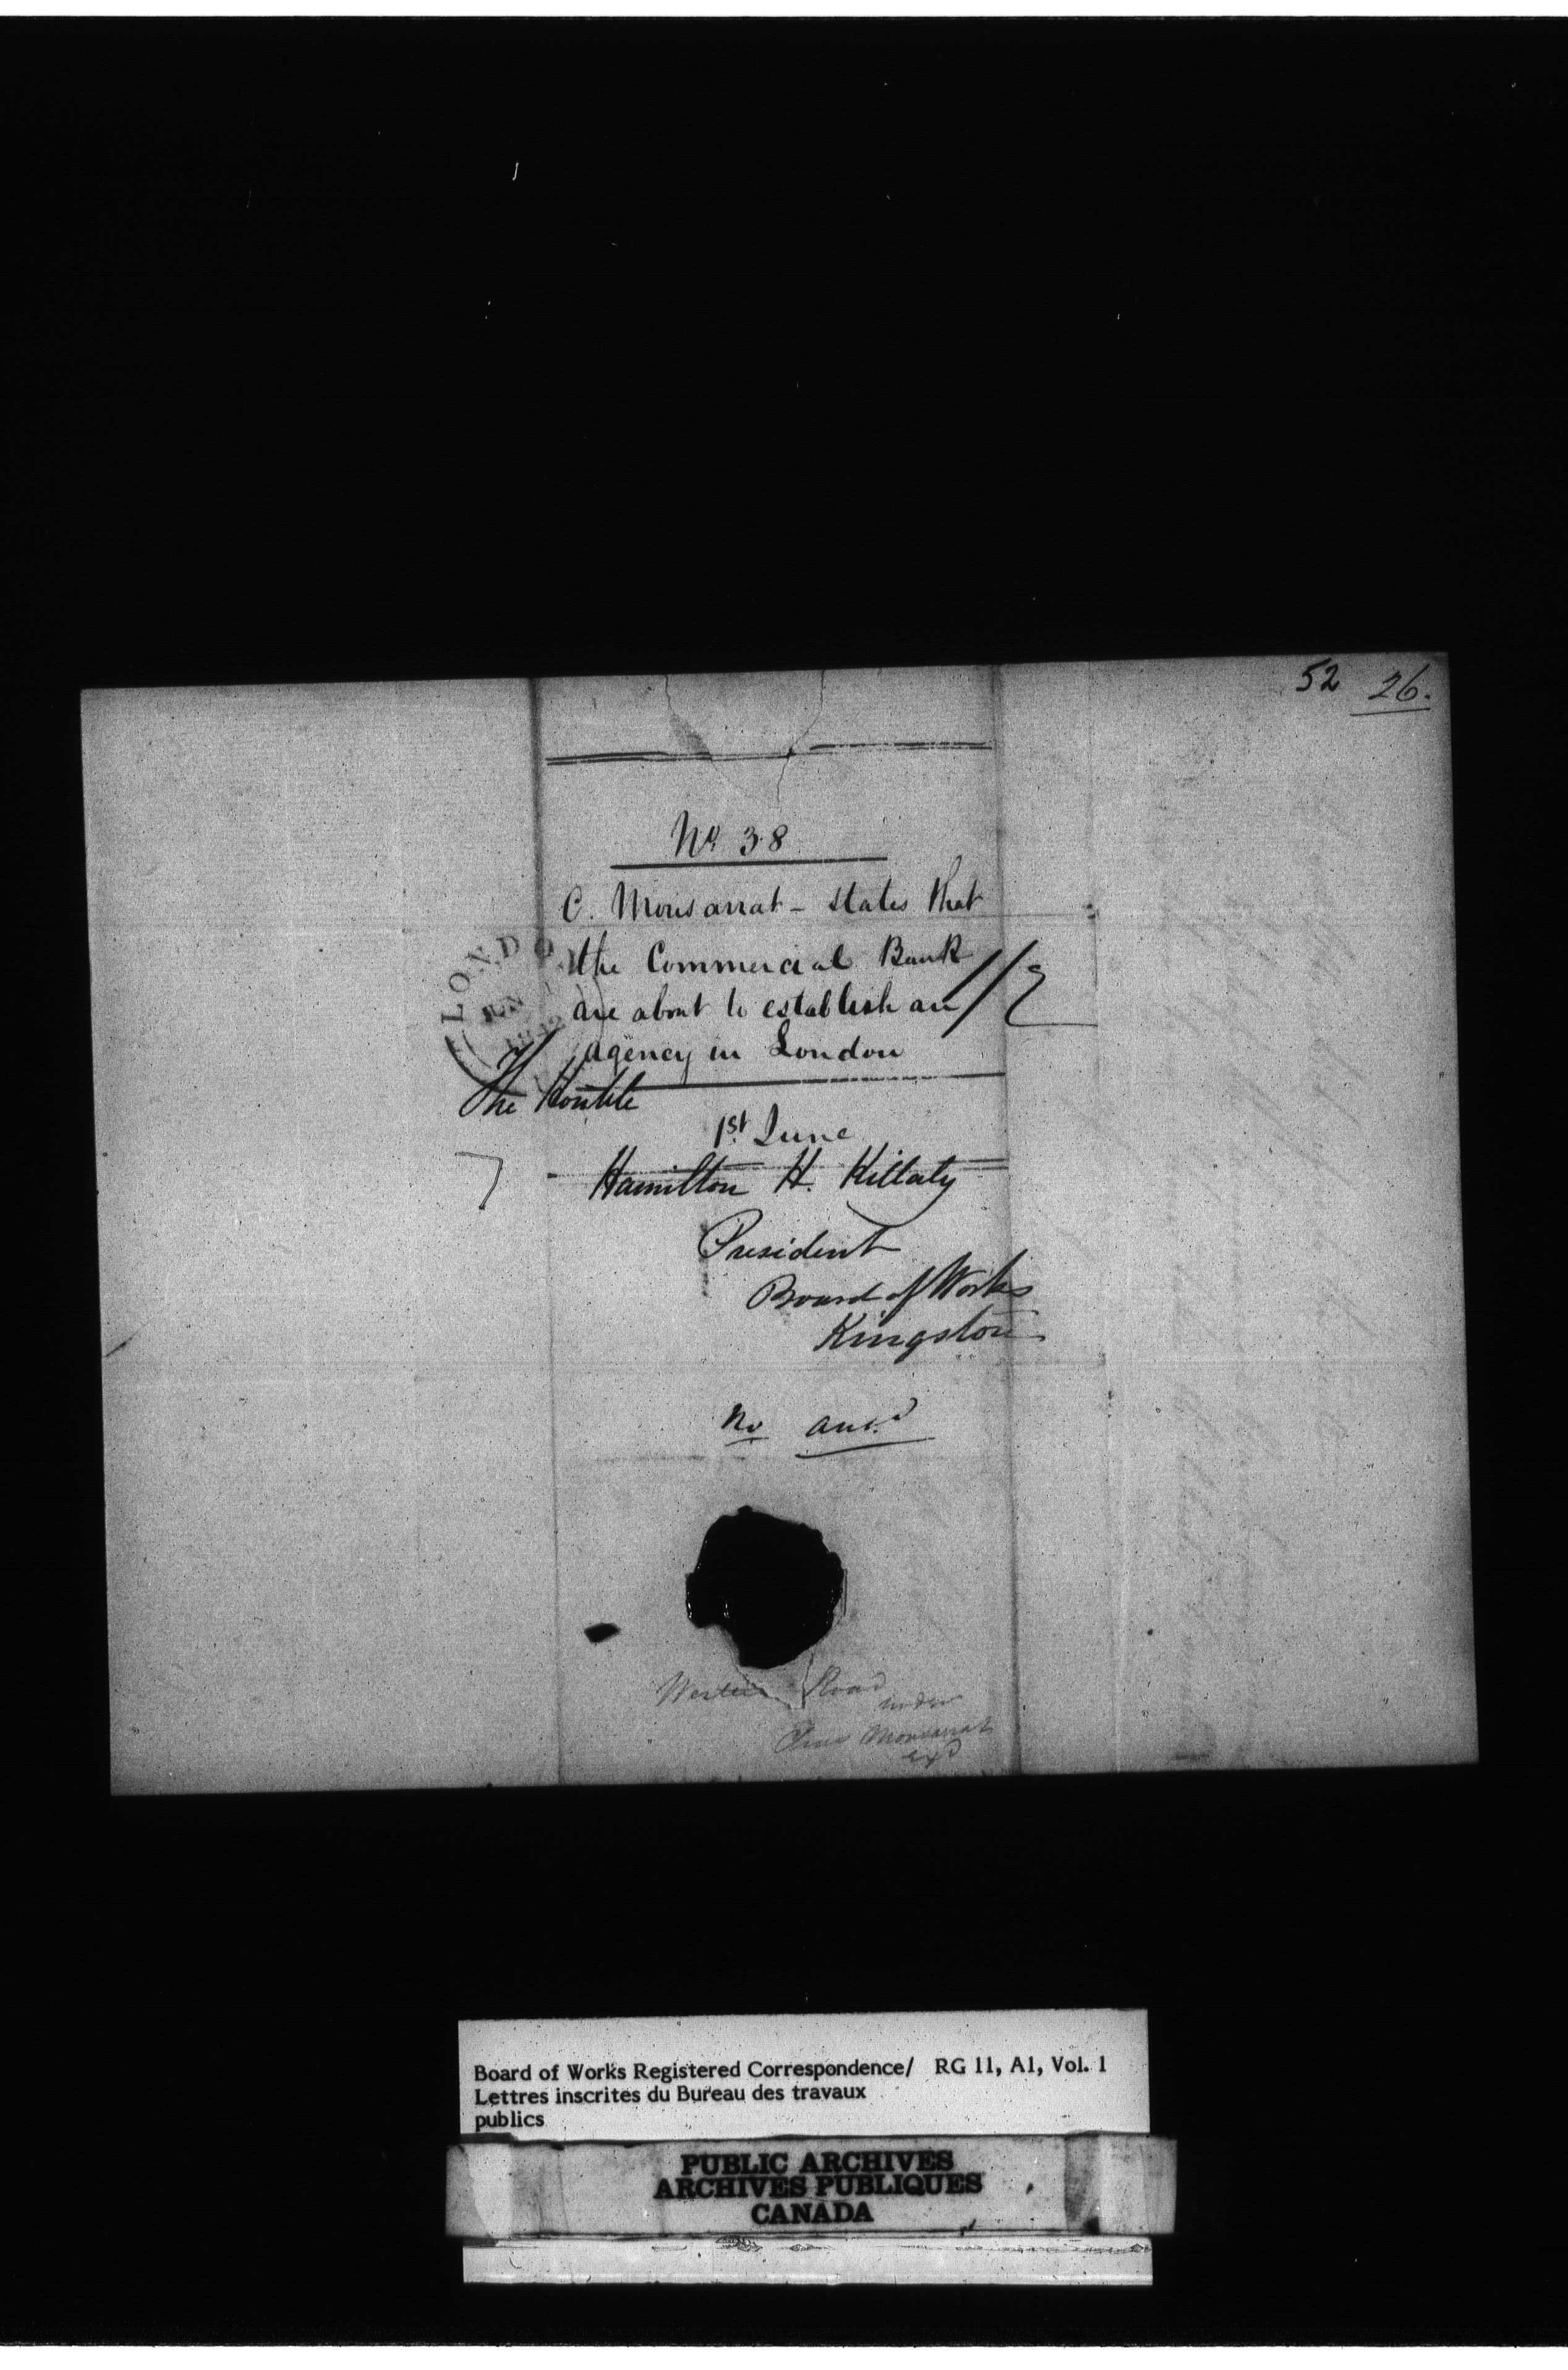 52 26.
No. 38
C. Monsarrat - states that
the Commercial Bank
are about to establish an
agency in London
1/2
LONDON
The Honble
1st. June
Hamilton H. Killaly
President
Board of Works
Kingston
No ansd.
Western Road
under
Monsarrat
Board of Works Registered Correspondence/ RG 11, A1, Vol. 1
Lettres inscrites du Bureau des travaux
publics
PUBLIC ARCHIVES
ARCHIVES PUBLIQUES
CANADA